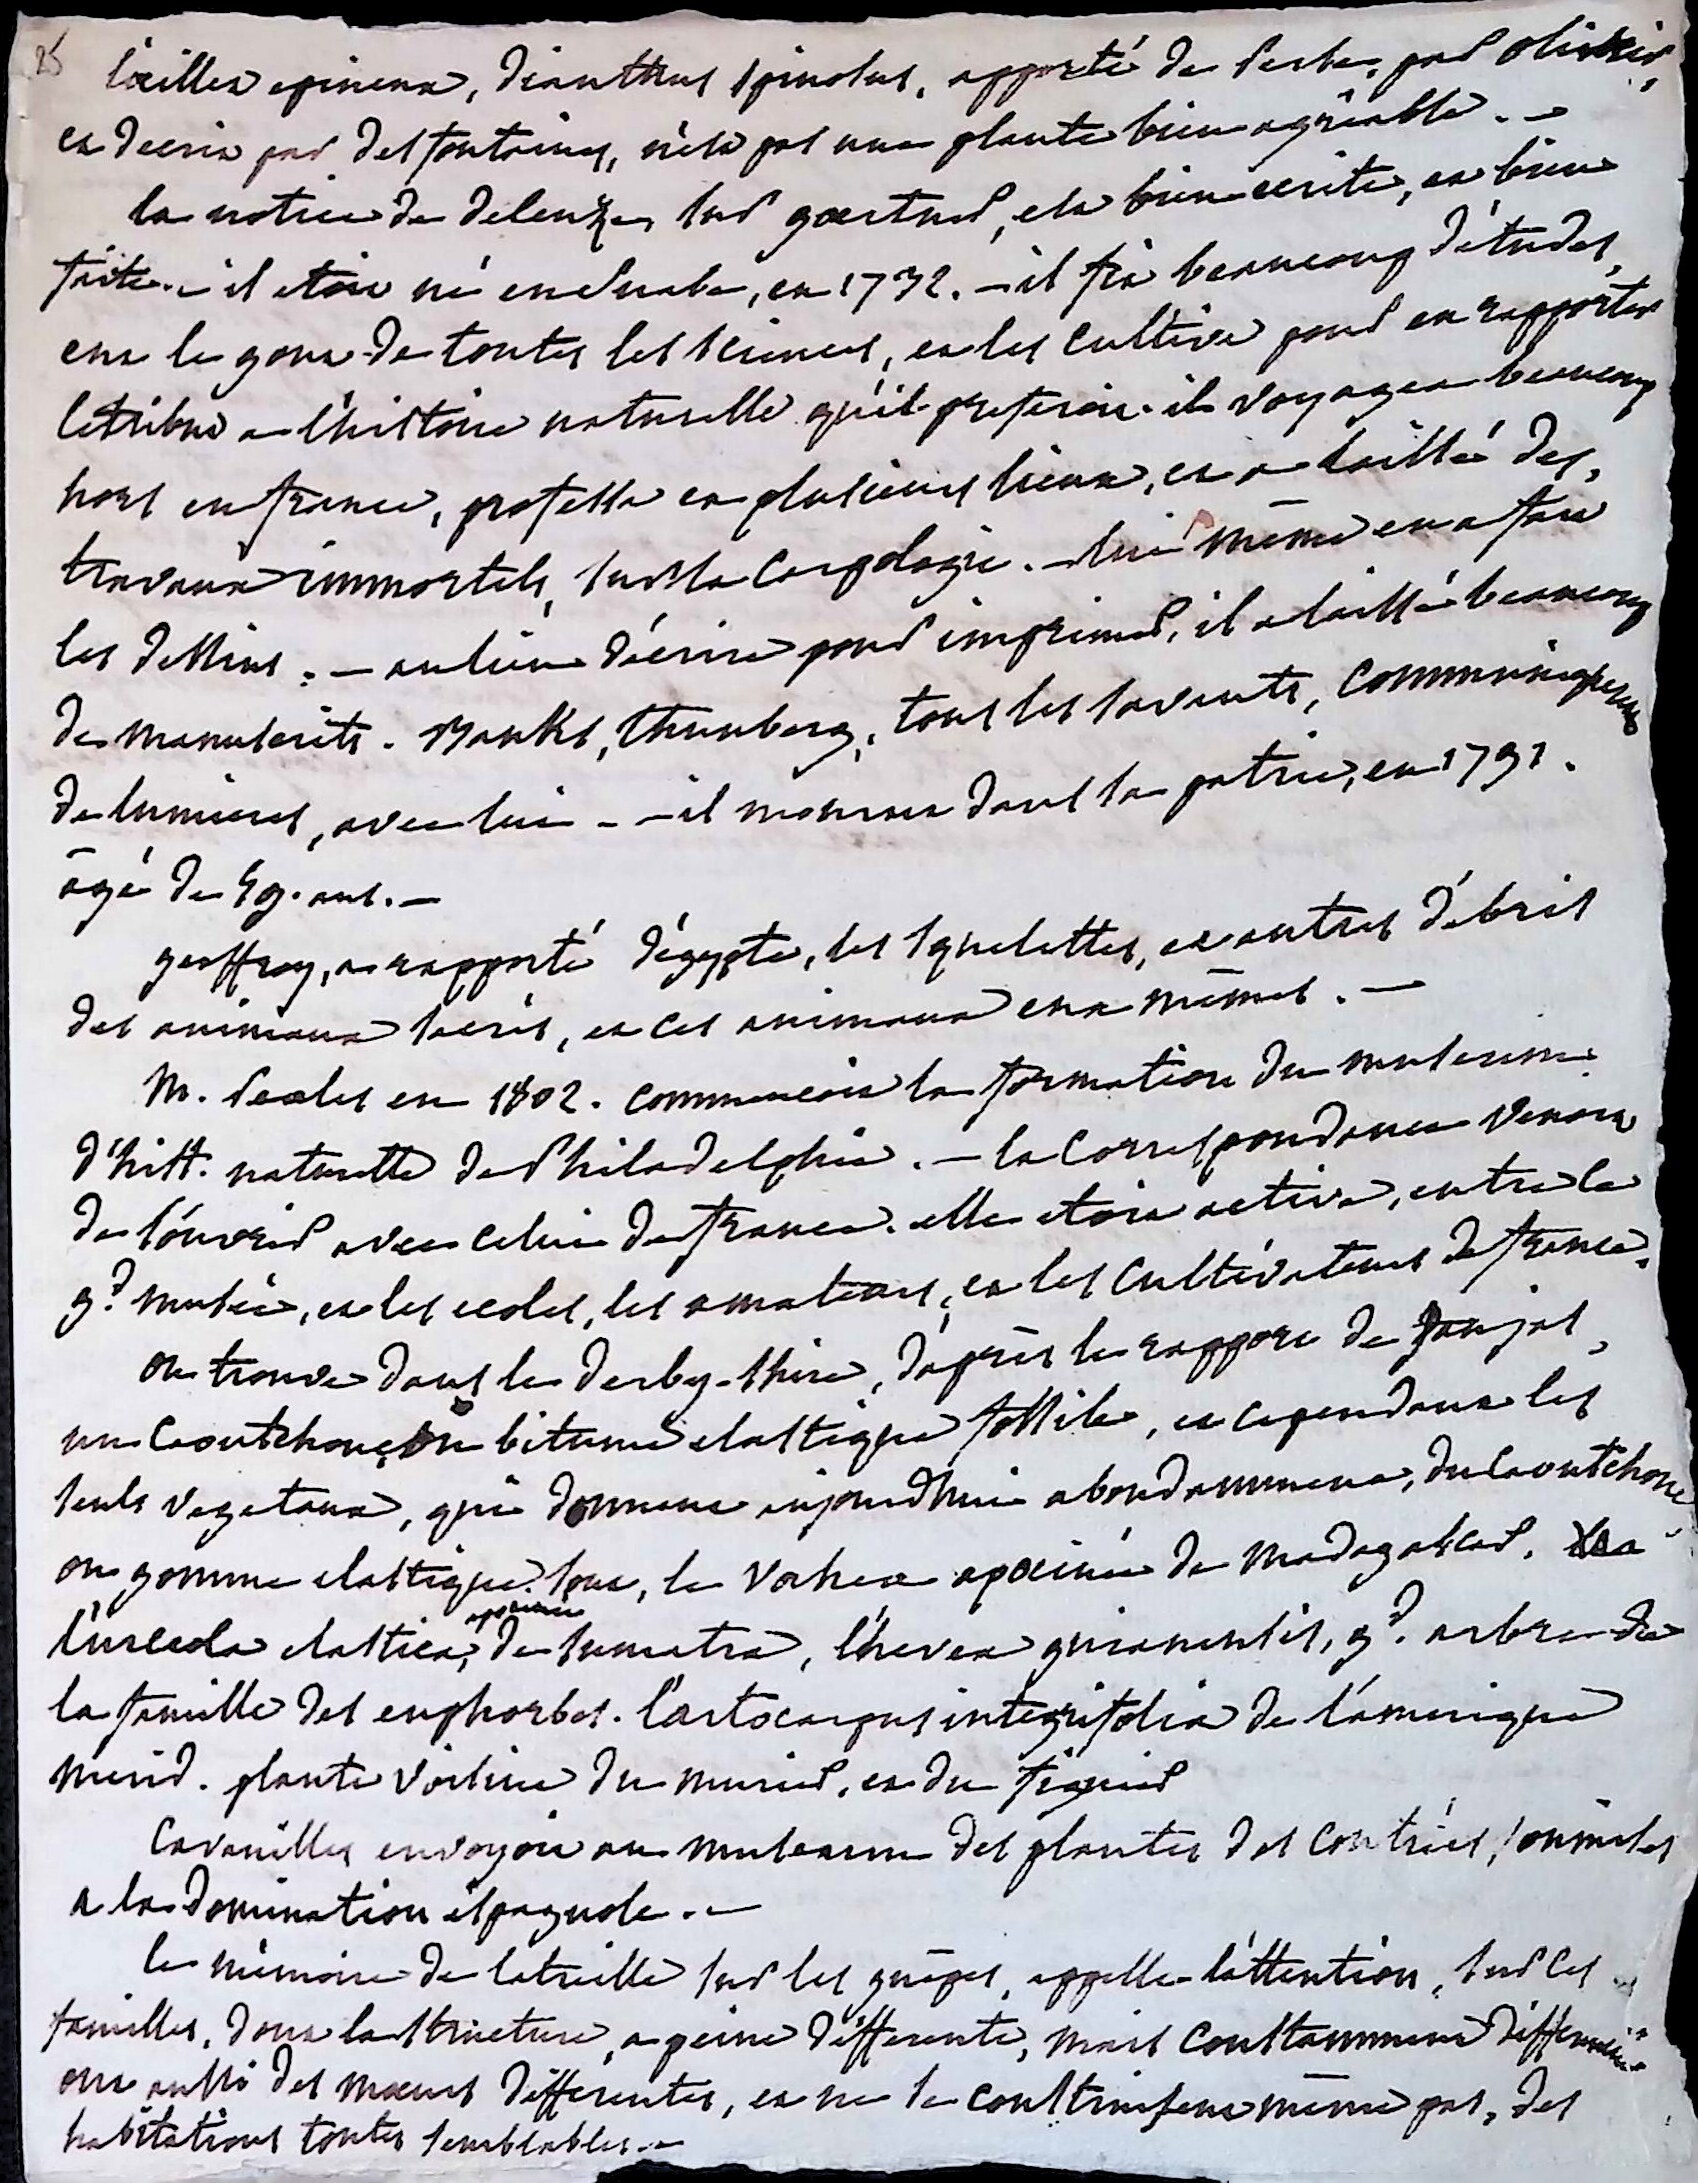 25
l'œillet epineux, dianthus spinosus, apporté de Perse, par olivier,
et decrit par desfontaines, n'est pas une plante bien agréable. —
la notice de deleuze, sur gœrtner, est bien ecrite, et bien
faite. — il etoit né en Suabe, en 1732. — il fit beaucoup d'études,
eut le gout de toutes les sciences, et les cultiva pour en rapporter
le tribut a l'histoire naturelle qu'il preferoit. il voyagea beaucoup
hors en france, professa en plusieurs lieux, et a laissé des,
travaux immortels, sur la carpologie. — lui même en a fait
les dessins. — au lieu d'écrire pour imprimer, il a laissé beaucoup
de manuscrits. Banks, thunberg, tous les savants, communiquerent
de lumieres, avec lui. — il mourut dans sa patrie, en 1791.
âgé de 59. ans. —
geoffroy, a rapporté d'égypte, les squelettes, et autres débris
des animaux sacrés, et ces animaux eux mêmes. —
M. Peales en 1802. commencoit la formation du museum
d'hist. naturelle de Philadelphie. — la correspondance venoit
de s'ouvrir avec celui de france. elle etoit active, entre le
gd. musée, et les ecoles, les amateurs, et les cultivateurs de france.
on trouve dans le derby-shire, d'après le rapport de faujas,
un caoutchouc, ou bitume elastique fossile, et cependant les
seuls vegetaux, qui donnent aujourdhui abondamment, du caoutchouc
ou gomme elastique. sont, le vahea apocinée de madagascar.
l'urceola elastica, apocinée de sumatra, l'hevea guianensis, gd. arbre de
la famille des euphorbes. l'artocarpus integrifolia de l'amerique
merid. plante voisine du murier, et du figuier
Cavanilles envoyoit au museum des plantes des contrées, soumises
a la domination espagnole. —
le mémoire de latreille sur les guêpes, appelle l'attention, sur ces
familles, dont la structure, a peine différente, mais constamment différente
ont aussi des mœurs différentes, et ne se construisent même pas, des
habitations toutes semblables. —